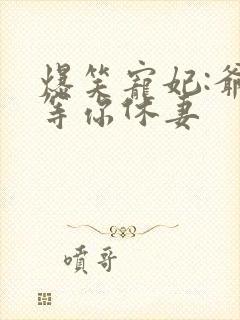 爆笑寵妃:爺
等你休妻
噴哥